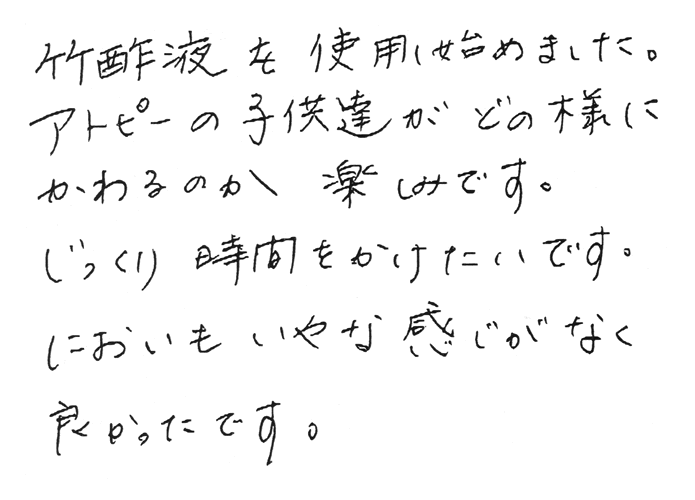 竹酢液を使用し始めました。
アトピーの子供達がどの様に
かわるのか楽しみです。
じっくり時間をかけたいです。
においもいやな感じがなく
良かったです。